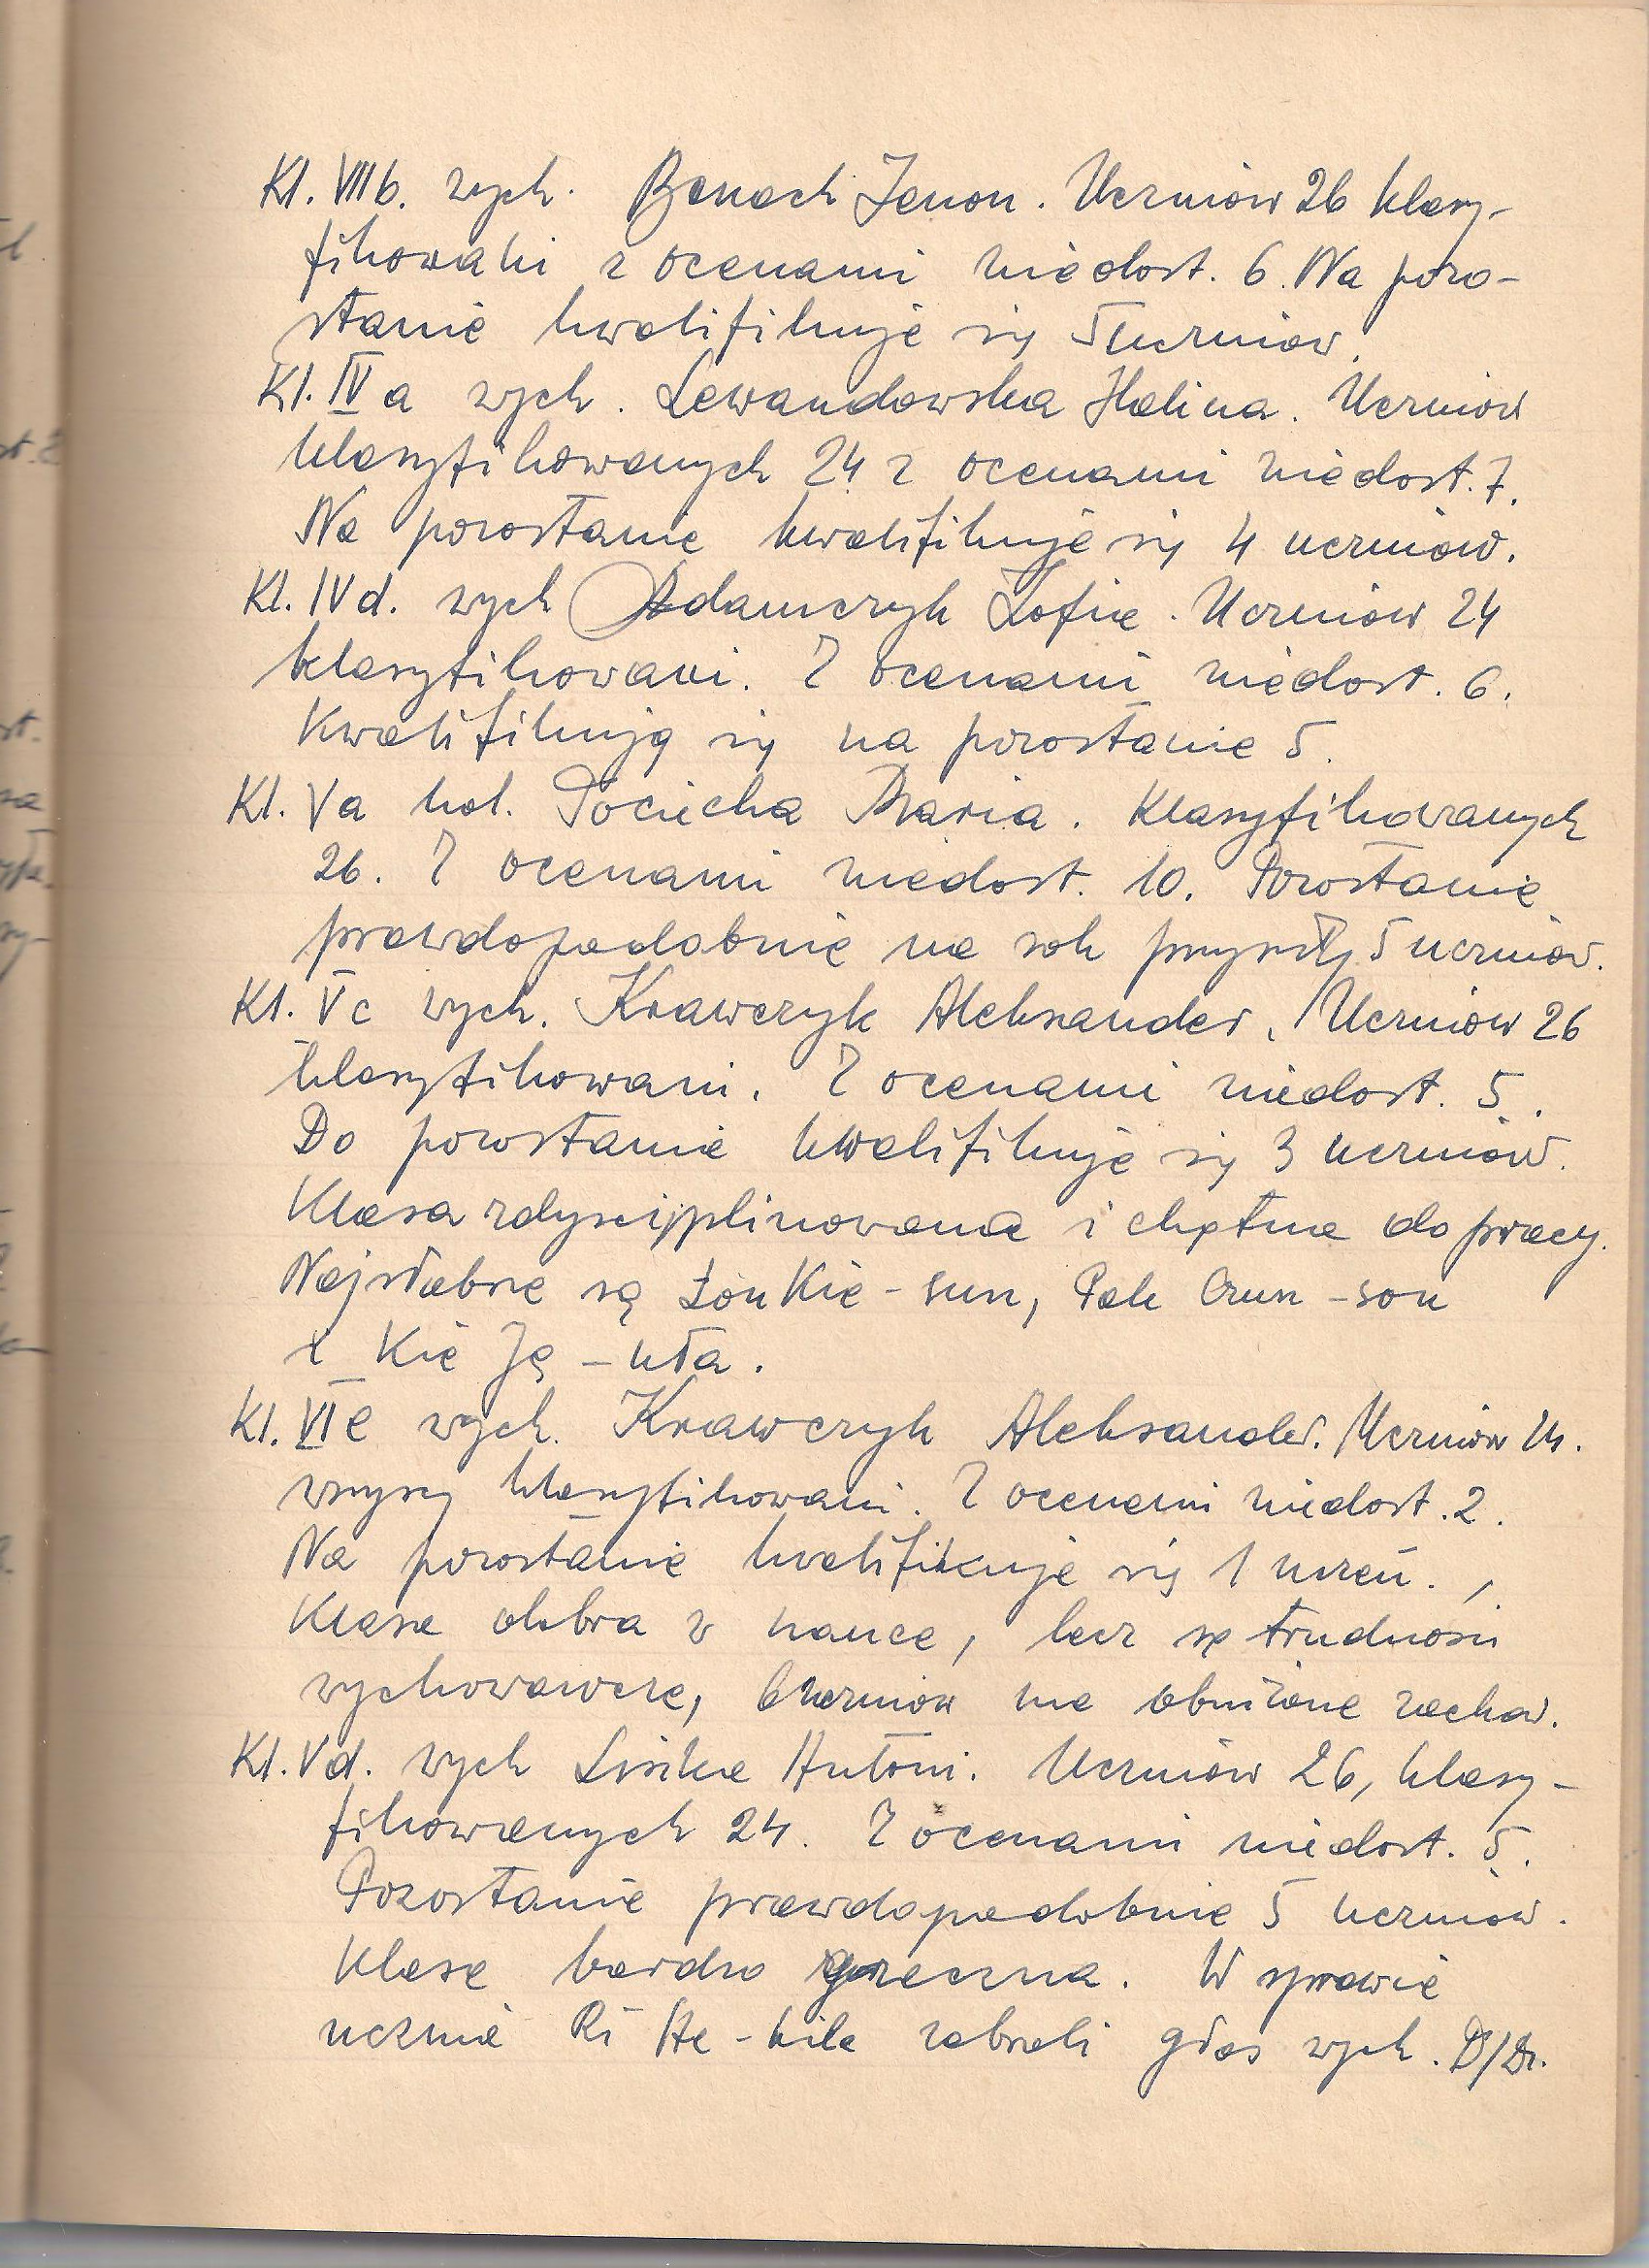 Kl. VIIb. wych. Banach Zenon. Uczniów 26 klasy-
fikowani z ocenami niedost. 6. Na pozo-
stanie kwalifikuje się 5 uczniów.
Kl. IVa wych. Lewandowska Halina. Uczniów
klasyfikowanych 24 z ocenami niedost. 7.
Na pozostanie kwalifikuje się 4 uczniów.
Kl. IVd. wych Adamczyk Zofia. Uczniów 24
klasyfikowani. Z ocenami niedost. 6.
Kwalifikują się na pozostanie 5.
Kl. Va kol. Pociecha Maria. Klasyfikowanych
26. Z ocenami niedost. 10. Pozostanie
prawdopodobnie na rok przyszły 5 uczniów.
Kl. Vc wych. Krawczyk Aleksander. Uczniów 26
klasyfikowani. Z ocenami niedost. 5.
Do pozostania kwalifikuje się 3 uczniów.
Klasa zdyscyplinowana i chętna do pracy.
Najsłabsze są Kie-sun, Pak Czun-son
i Kie Ję-uła.
Kl. VIe wych. Krawczyk Aleksander. Uczniów 24.
wszyscy klasyfikowani. Z ocenami niedost. 2.
Na pozostanie kwalifikuje się 1 uczeń.
Klasa dobra w nauce, lecz są trudności
wychowawcze, 6 uczniów ma obniżone zachow.
Kl. Vd. wych Antoni. Uczniów 26, klasy-
fikowanych 24. Z ocenami niedost. 5.
Pozostanie prawdopodobnie 5 uczniów.
Klasa bardzo grzeczna. W sprawie
ucznia Ri He-kile zabrali głos wych.